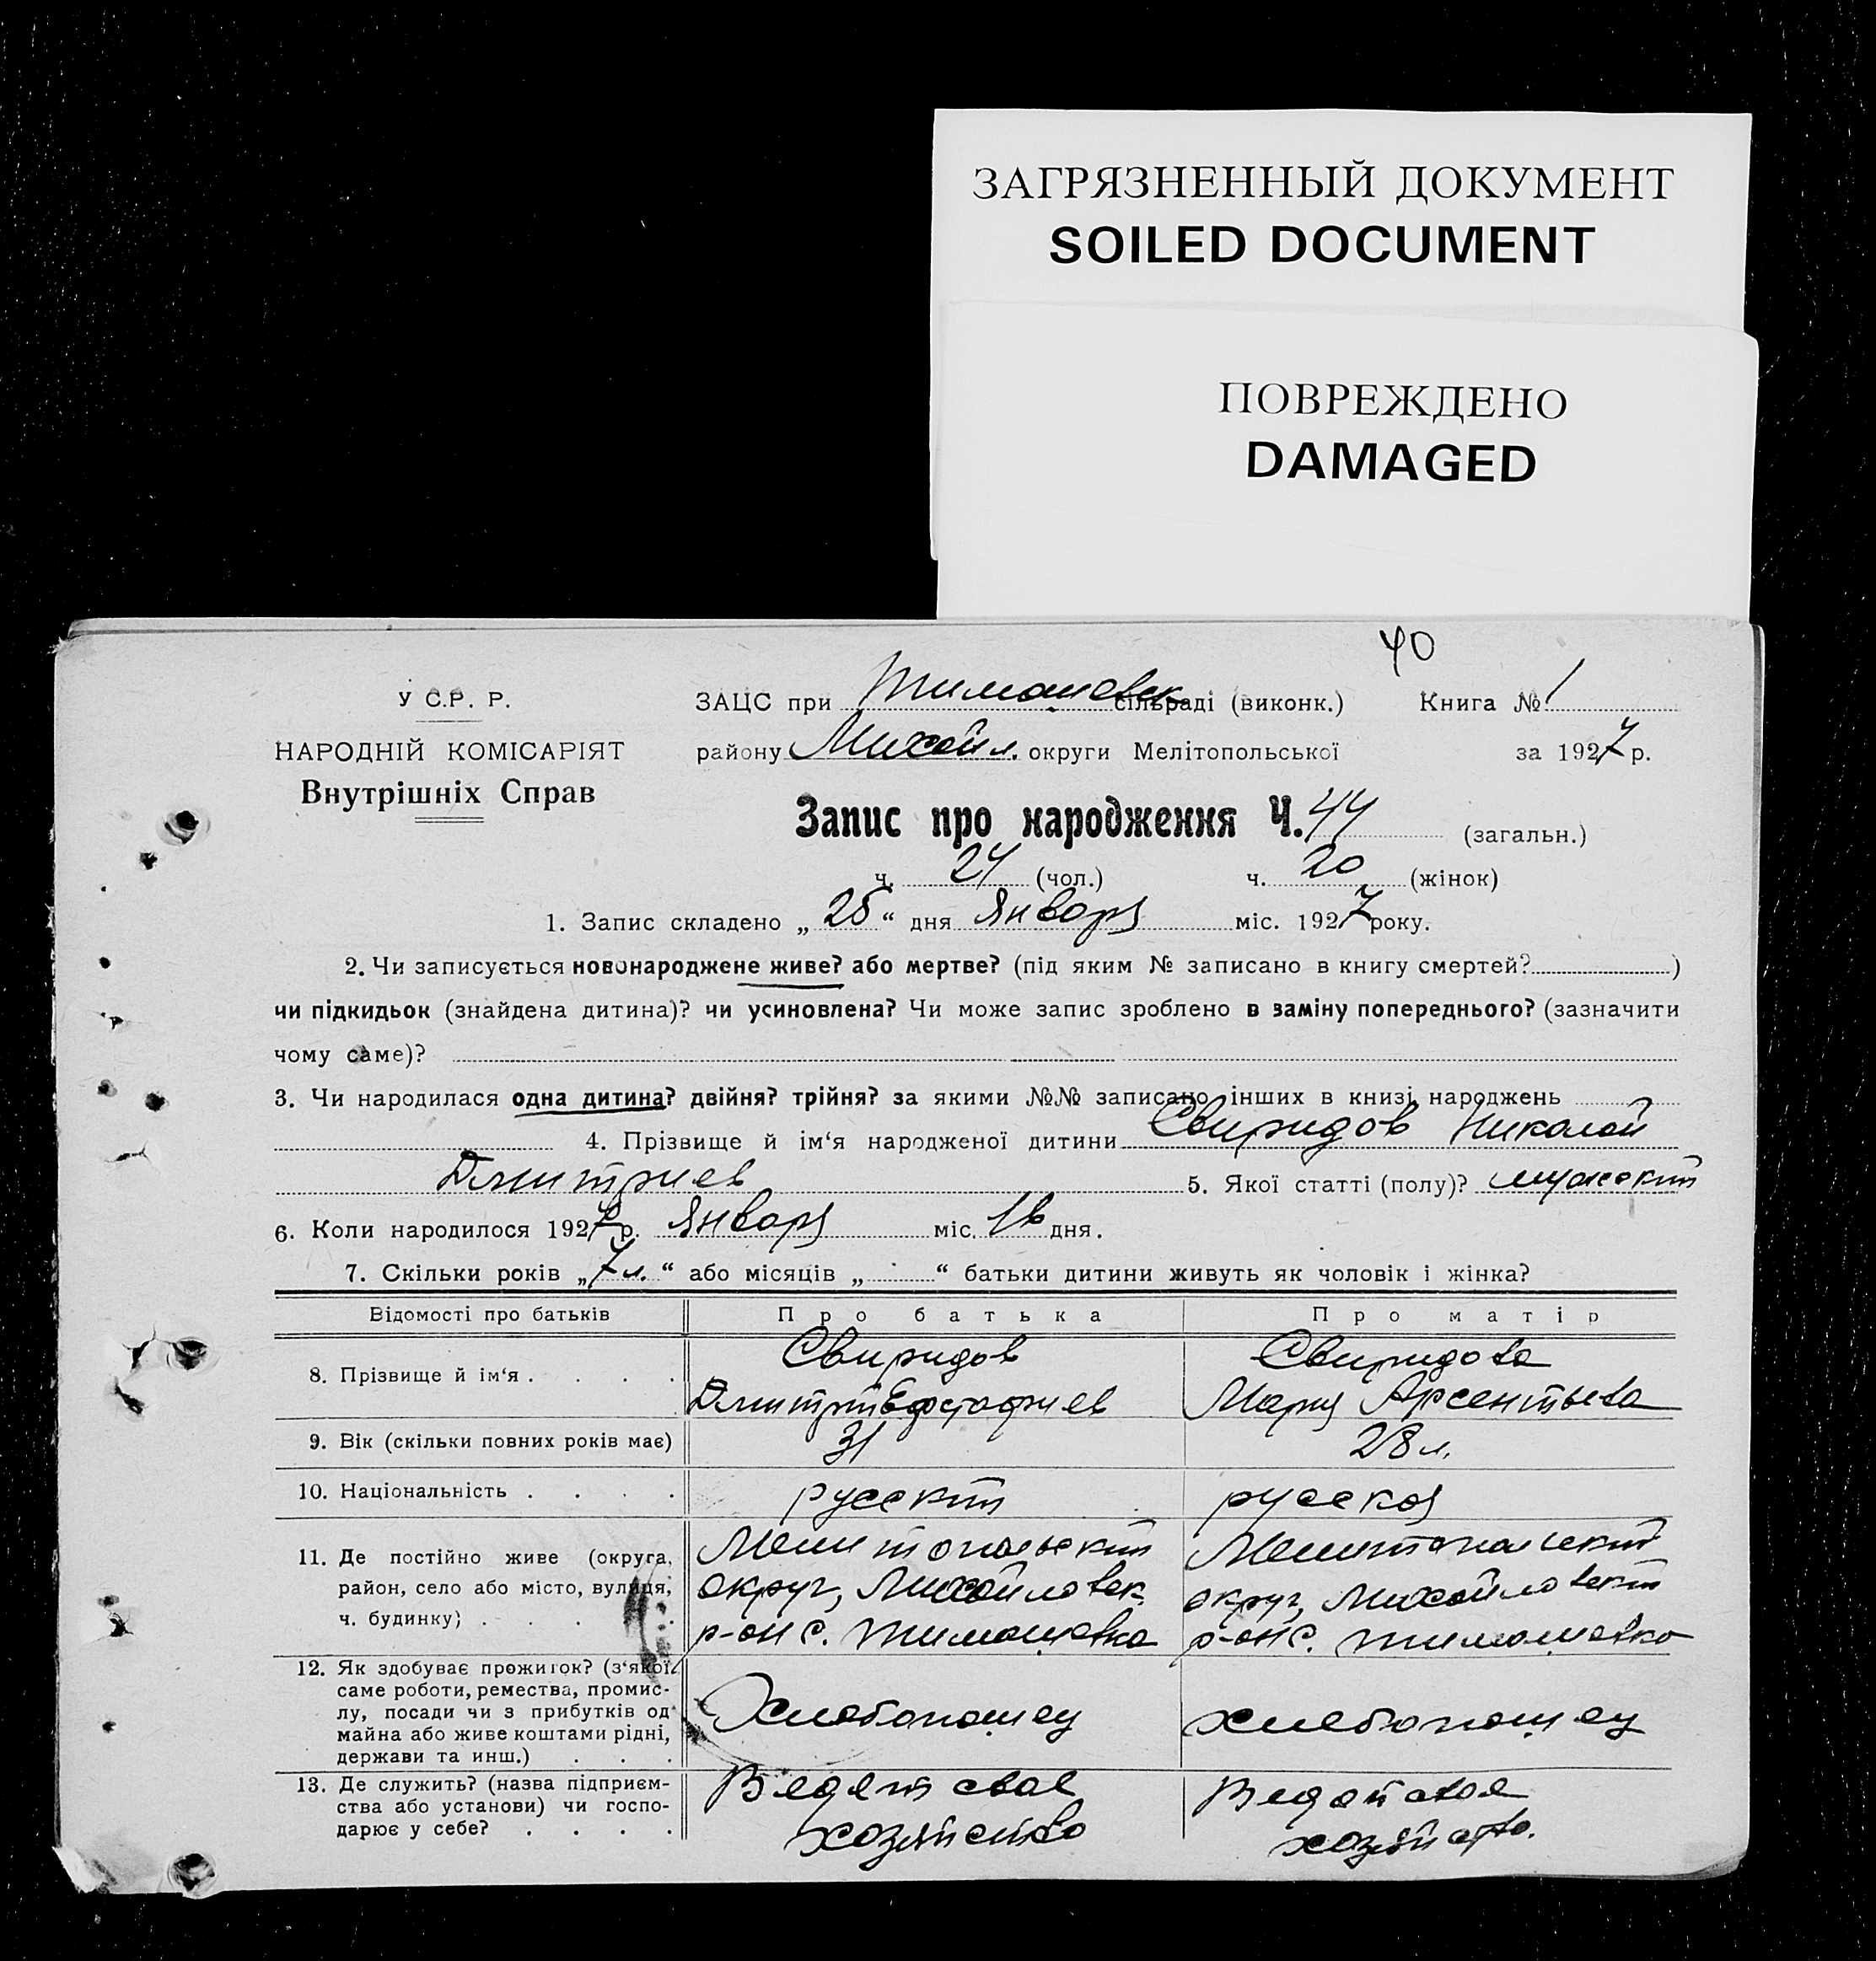 ЗАГРЯЗНЕННЫЙ ДОКУМЕНТ
SOILED DOCUMENT
ПОВРЕЖДЕНО
DAMAGED
40
У С.Р. Р.
НАРОДНІЙ КОМІСАРІЯТ
Внутрішніх Справ
ЗАЦС при Тимошевск сільраді (виконк.) Книга № 1
району Михайл. округи Мелітопольської за 1927 р.
Запис про народження Ч. 44 (загальн.)
ч. 24 (чол.) ч. 20 (жінок)
1. Запис складено „ 25 “ дня Января міс. 1927 року.
2. Чи записується новонароджене живе? або мертве? (під яким № записано в книгу смертей? )
чи підкидьок (знайдена дитина)? чи усиновлена? Чи може запис зроблено в заміну попереднього? (зазначити
чому саме)?
3. Чи народилася одна дитина? двійня? трійня? за якими №№ записано інших в книзі народжень
4. Прізвище й ім‘я народженої дитини Свиридов Николай
Дмитриев 5. Якої статті (полу)? мужский
6. Коли народилося 1927 р. Января міс. 16 дня.
7. Скільки років „ 7 л. “ або місяців „ “ батьки дитини живуть як чоловік і жінка?
Відомості про батьків Про батька Про матір
8. Прізвище й ім‘я . . . . Свиридов Свиридова
Дмитрий Ефстафиев Мария Арсентьева
9. Вік (скільки повних років має) 31 28 л.
10. Національність . . . . русский русская
11. Де постійно живе (округа,
район, село або місто, вулиця,
ч. будинку) . . . .
Мелитопольский
округ, Михайловск.
р-он с. Тимошевка
Мелитопольский
округ, Михайловский
р-он с. Тимошевка
12. Як здобуває прожиток? (з‘якої
саме роботи, ремества, промис-
лу, посади чи з прибутків од
майна або живе коштами рідні,
держави та инш.) . . .
Хлебопашец
хлебопашец
13. Де служить? (назва підприєм-
ства або установи) чи госпо-
дарює у себе? . . . .
Ведет свое
хозяйство
Ведет свое
хозяйство.